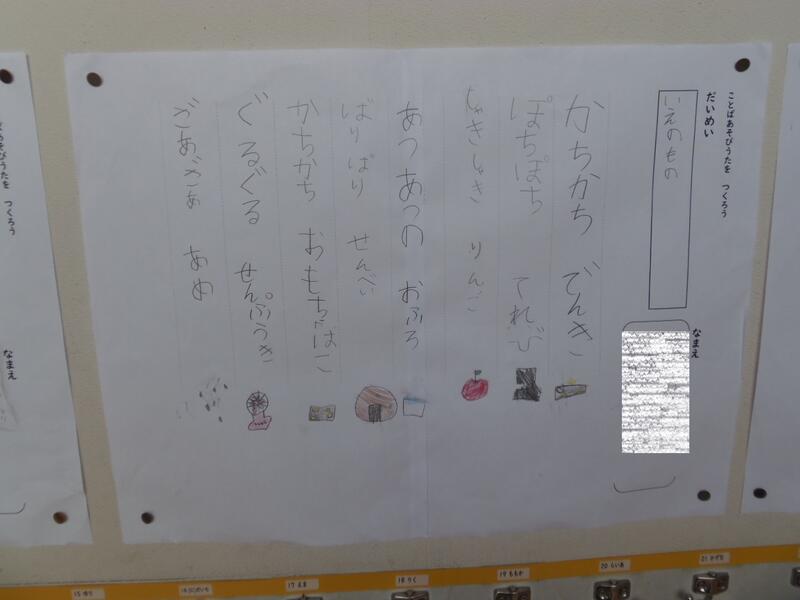 ことばあそびうたを つくろう
だいめい
いえのもの
なまえ
かちかち でんき
ぽちぽち てれび
しゃきしゃき りんご
あつあつの おふろ
ばりばり せんべい
かちかち おもちゃばこ
ぐるぐる せんぷうき
ざあざあ あめ
なまえ
15 ゆり
17 えま
18 りく
19 ももか
20 らいあ
21 かずと